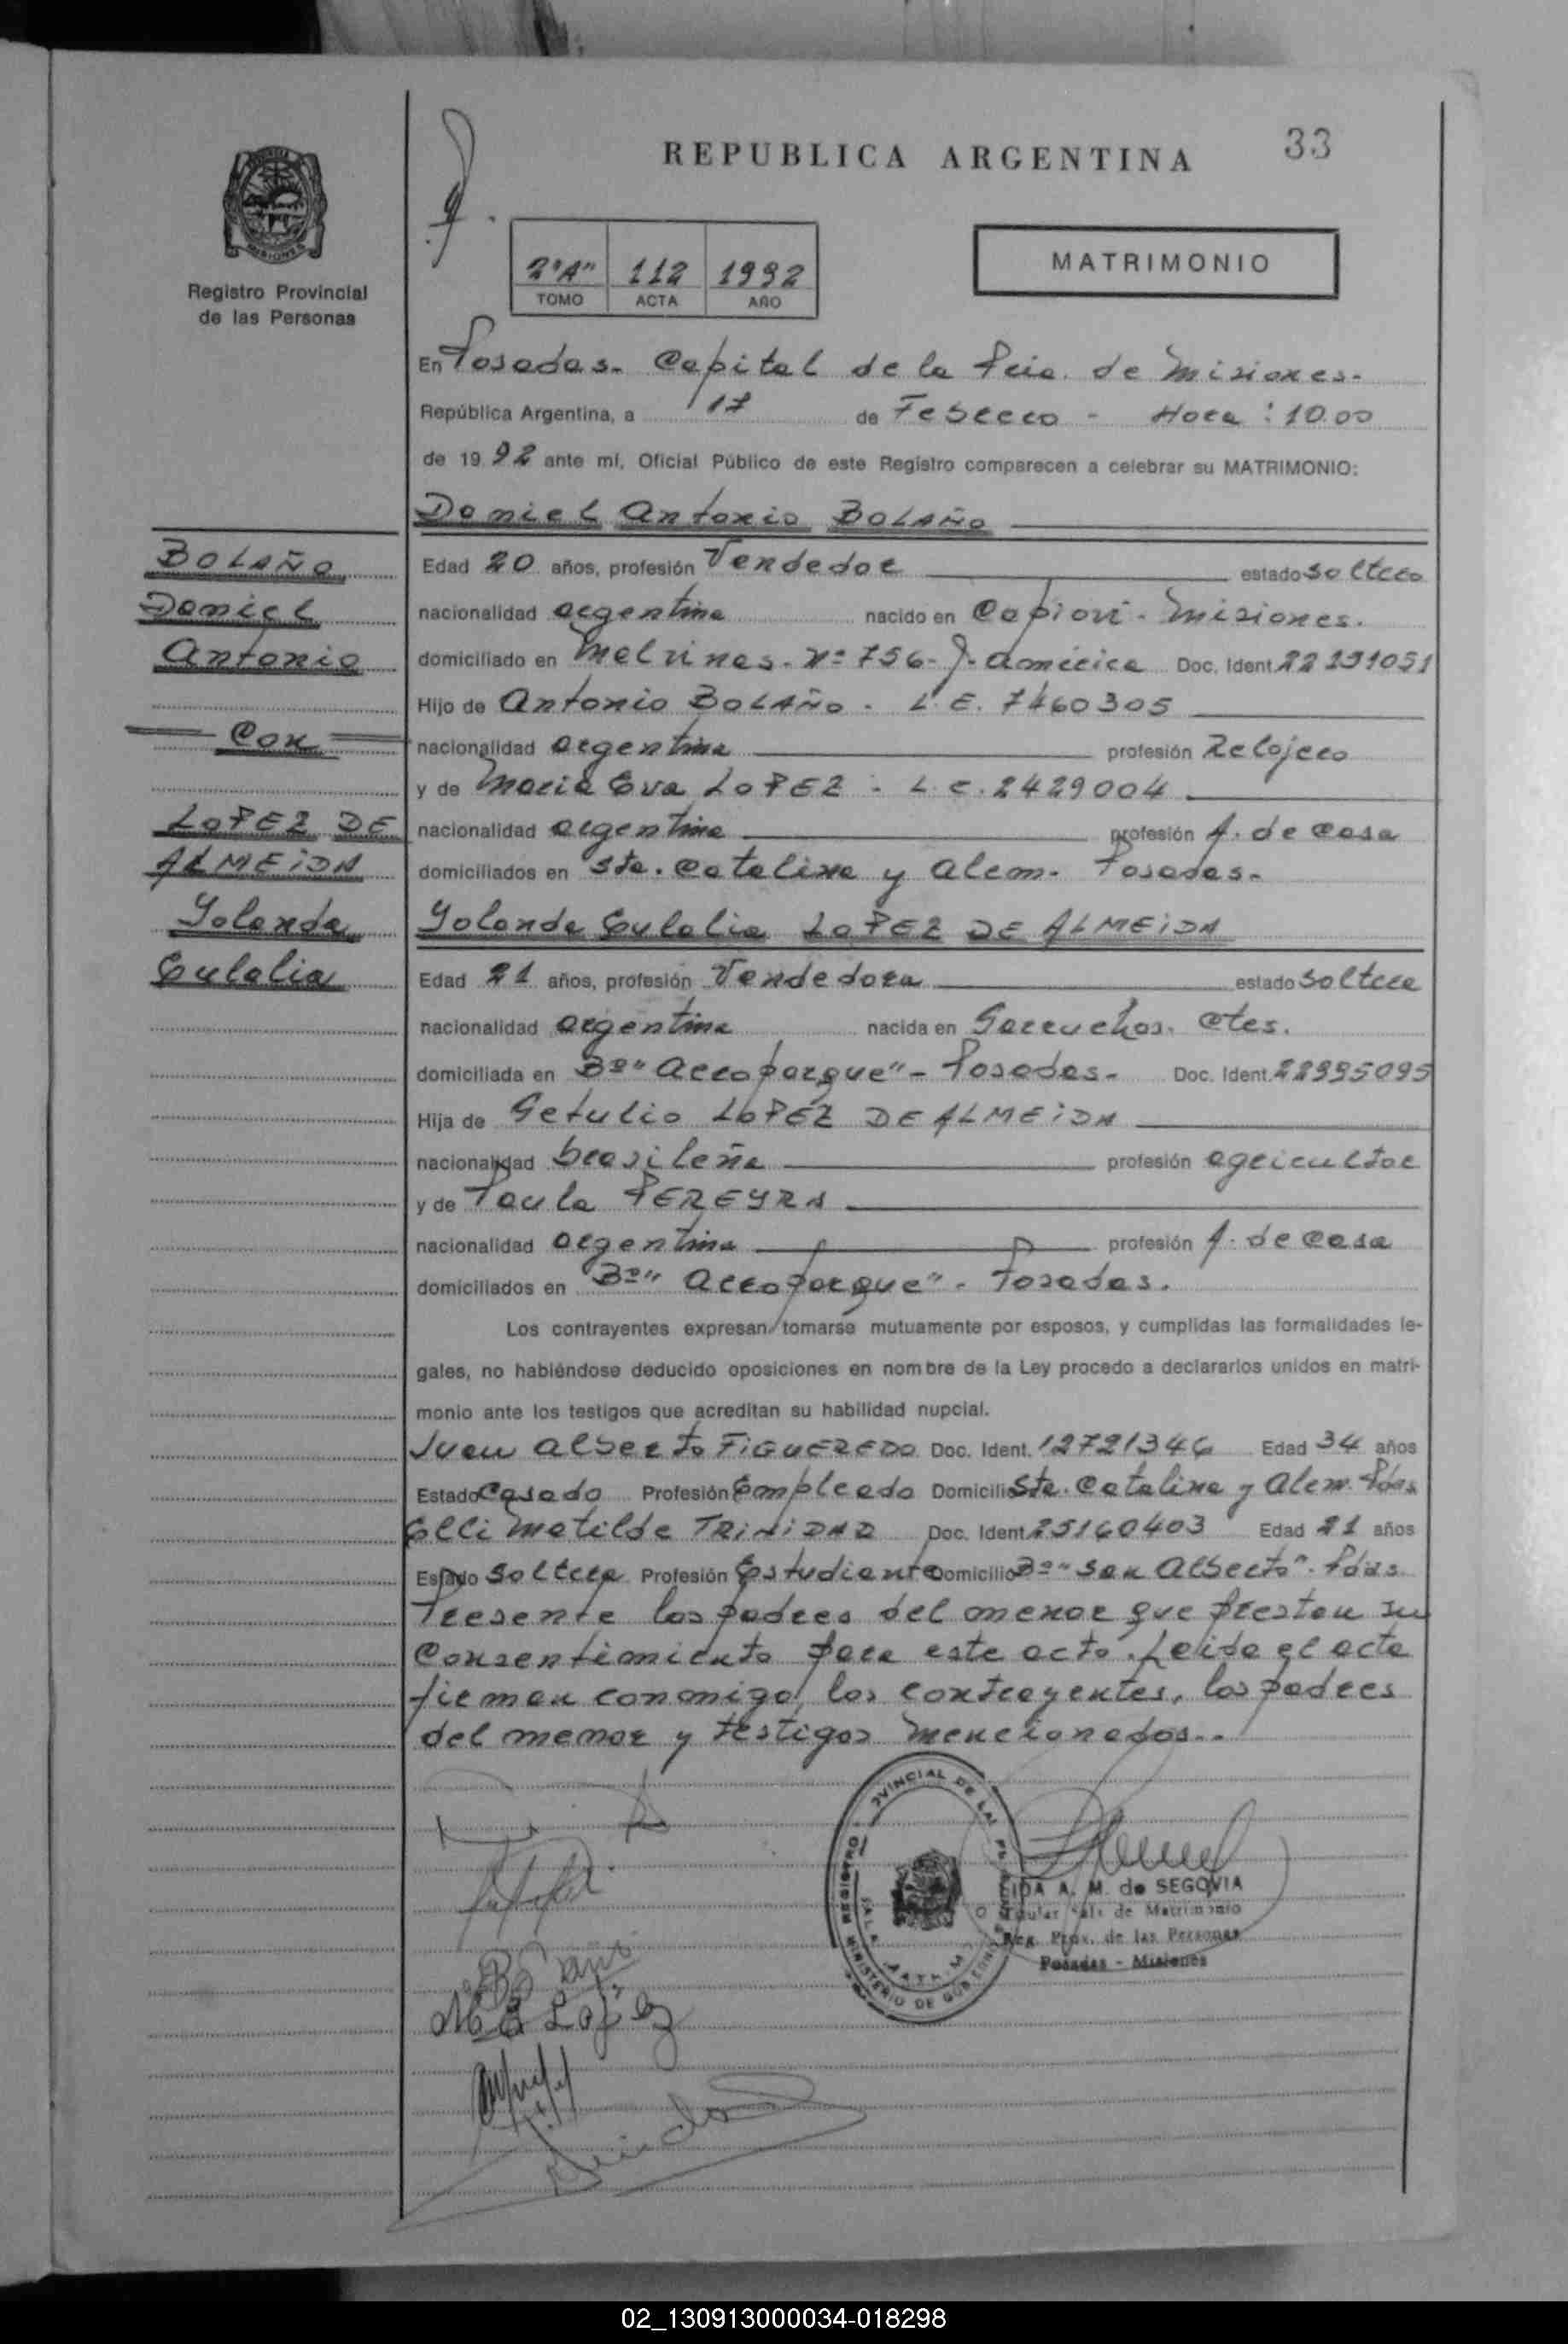 REPUBLICA ARGENTINA
33
MISIONES
Registro Provincial
de las Personas
2º"A" 112 1992
TOMO ACTA AÑO
MATRIMONIO
En Posadas- Capital de la Pcia. de Misiones-
República Argentina, a 17 de Febrero - Hora: 10.00
de 1992 ante mí, Oficial Público de este Registro comparecen a celebrar su MATRIMONIO:
Daniel Antonio BOLAÑO
BOLAÑO
Daniel
Antonio
Con
LOPEZ DE
ALMEiDA
Yolanda
Eulalia
Edad 20 años, profesión Vendedor estado soltero
nacionalidad argentina nacido en Capiovi - Misiones.
domiciliado en Melvinas- Nº 756- J. America Doc. Ident. 22191051
Hijo de Antonio BOLAÑO - L.E. 7460305
nacionalidad argentina profesión Relojero
y de Maria Eva LOPEZ - L.C. 2429004
nacionalidad argentina profesión A. de Casa
domiciliados en Sta. Catalina y Alem- Posadas-
Yolanda Eulalia LOPEZ DE ALMEiDA
Edad 21 años, profesión Vendedora estado soltera
nacionalidad argentina nacida en Garruchos. Ctes.
domiciliada en Bº" Aeroparque" - Posadas- Doc. Ident. 22995095
Hija de Getulio LOPEZ DE ALMEiDA
nacionalidad brasileña profesión agricultor
y de Paula PEREYRA
nacionalidad argentina profesión A. de Casa
domiciliados en Bº" Aeroparque" - Posadas.
Los contrayentes expresan tomarse mutuamente por esposos, y cumplidas las formalidades le-
gales, no habiéndose deducido oposiciones en nombre de la Ley procedo a declararlos unidos en matri-
monio ante los testigos que acreditan su habilidad nupcial.
Juan Alberto FiGUEREDO Doc. Ident. 12721346 Edad 34 años
Estado Casado Profesión Empleado Domicilio Sta. Catalina y Alem. Pdas
Elli Matilde TRiNiDAD Doc. Ident. 25160403 Edad 21 años
Estado Soltera Profesión Estudiante Domicilio Bº" San Alberto". Pdas.
Presente los padres del menor que prestan su
Consentimiento para este acto. Leida el acta
firman conmigo, los contrayentes, los padres
del menor y testigos mencionados..
REGISTRO PROVINCIAL DE LAS
MINISTERIO DE GOBIERNO
Bolaño
M E Lopez
IDA A. M. de SEGOVIA
Titular Sala de Matrimonio
Reg. Prov. de las Personas
Posadas - Misiones
02_130913000034-018298